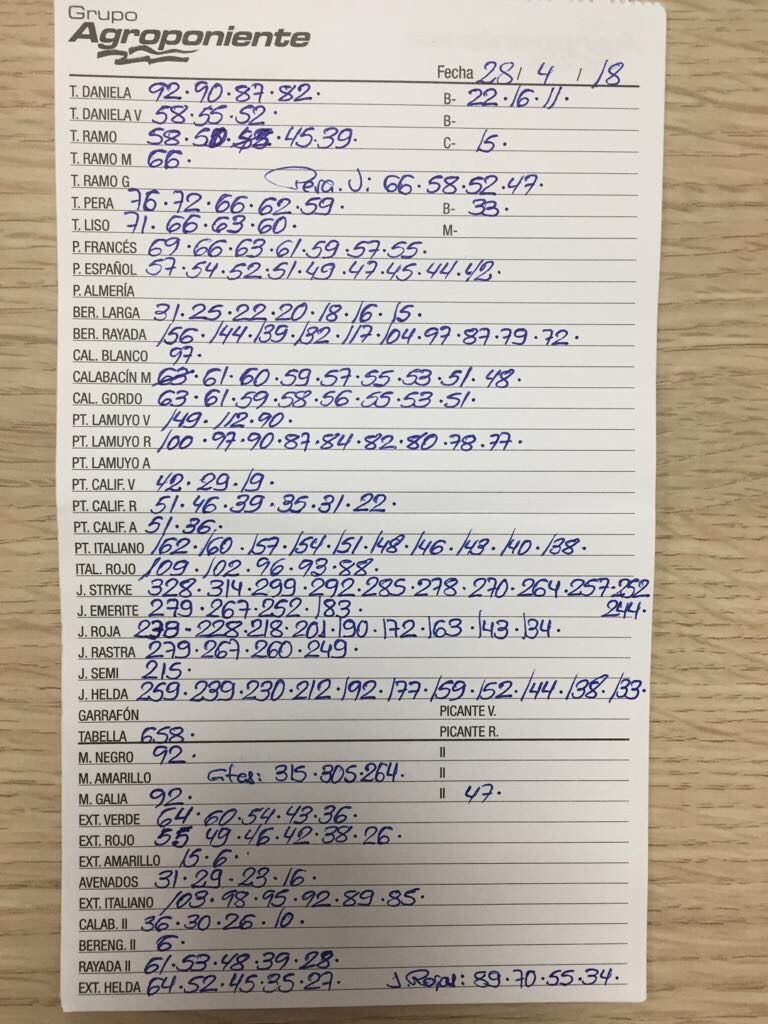 Grupo
Agroponiente
Fecha 28/ 4 / 18
T. DANIELA 92·90·87·82· B- 22·16·11·
T. DANIELA V 58·55·52· B-
T. RAMO 58·50· ·45·39· C- 15·
T. RAMO M 66·
T. RAMO G Pera. J: 66·58·52·47·
T. PERA 76·72·66·62·59· B- 33·
T. LISO 71·66·63·60· M-
P. FRANCÉS 69·66·63·61·59·57·55·
P. ESPAÑOL 57·54·52·51·49·47·45·44·42·
P. ALMERÍA
BER. LARGA 31·25·22·20·18·16·15·
BER. RAYADA 156·144·139·132·117·104·97·87·79·72·
CAL. BLANCO 97·
CALABACÍN M 63·61·60·59·57·55·53·51·48·
CAL. GORDO 63·61·59·58·56·55·53·51·
PT. LAMUYO V 149·112·90·
PT. LAMUYO R 100·97·90·87·84·82·80·78·77·
PT. LAMUYO A
PT. CALIF. V 42·29·19·
PT. CALIF. R 51·46·39·35·31·22·
PT. CALIF. A 51·36·
PT. ITALIANO 162·160·157·154·151·148·146·143·140·138·
ITAL. ROJO 109·102·96·93·88·
J. STRYKE 328·314·299·292·285·278·270·264·257·252
J. EMERITE 279·267·252·183· 244·
J. ROJA 228·218·201·190·172·163·143·134·
J. RASTRA 279·267·260·249·
J. SEMI 215·
J. HELDA 259·239·230·212·192·177·159·152·144·138·133·
GARRAFÓN PICANTE V.
TABELLA 658· PICANTE R.
M. NEGRO 92· II
M. AMARILLO 315·305·264· II
M. GALIA 92· II 47·
EXT. VERDE 64·60·54·43·36·
EXT. ROJO 55 49·46·42·38·26·
EXT. AMARILLO 15·6·
AVENADOS 31·29·23·16·
EXT. ITALIANO 103·98·95·92·89·85·
CALAB. II 36·30·26·10·
BERENG. II 6·
RAYADA II 61·53·48·39·28·
EXT. HELDA 64·52·45·35·27· J. Rojas: 89·70·55·34·